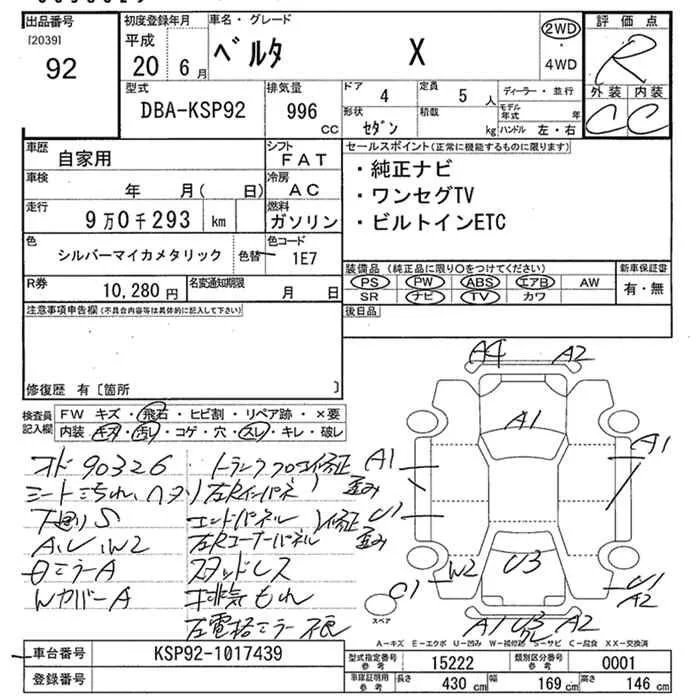 出品番号
[2039]
92
初度登録年月
平成
20 6月
車名・グレード
ベルタ X
2WD
・
4WD
評価点
R
外装 内装
C C
型式
DBA-KSP92
排気量
996
cc
ドア 4
定員 5 人
形状
セダン
積載
kg
ディーラー・並行
モデル
年式 年
ハンドル 左・右
車歴
自家用
シフト
FAT
車検
年 月( 日)
冷房
AC
走行
9万0千293 km
燃料
ガソリン
色
シルバーマイカメタリック
色替
色コード
1E7
R券
10,280円
名変通知期限
月 日
セールスポイント(正常に機能するものに限ります)
・純正ナビ
・ワンセグTV
・ビルトインETC
装備品(純正品に限り○をつけてください)
PS PW ABS エアB AW
SR ナビ TV カワ
新車保証書
有・無
後日品
注意事項申告欄(不具合内容等は具体的に記入して下さい)
修復歴 有〔箇所 〕
検査員
記入欄
FW キズ・飛石・ヒビ割・リペア跡・×要
内装 キズ・汚れ・コゲ・穴・スレ・キレ・破レ
オド90326
シートよごれ、ヘタリ
下廻りS
A、U、W2
ミラーA
WカバーA
トランクフロア修正
左Rインパネ
歪み
エンドパネル
左Rコーナーパネル
修正
歪み
スタッドレス
排気もれ
左電格ミラー不良
A4 A2
A1
A1 A1
U1
W2 U3 U1
A2
C1
A1 U3 A2
スペア
A-キズ E-エクボ U-凹み W-補修跡 S-サビ C-腐食 XX-交換済
車台番号
KSP92-1017439
登録番号
型式指定番号
参考
15222
類別区分番号
参考
0001
車庫証明記載
参考
長さ 430 cm 幅 169 cm 高さ 146 cm